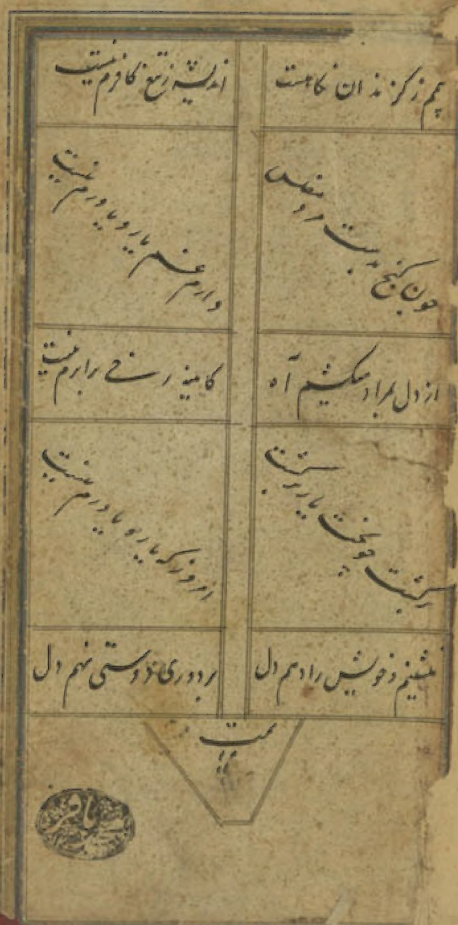 بیم ز گزند آن نگاهست اندیشه ز تیغ کافرم نیست
چون گنج به دست مرد مفلس دارم غم یار و یاورم نیست
از دل بمراد میکشم آه کایینه رخی برابرم نیست
برگشت چو بخت یار برگشت امروز که یار و یاورم نیست
بنشینم و خویش را دهم دل بر دوری دوستی نهم دل
تمت